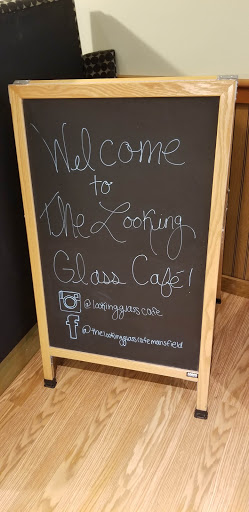 Welcome
to
The Looking
Glass Café!
@lookingglasscafe
@thelookingglasscafemansfield